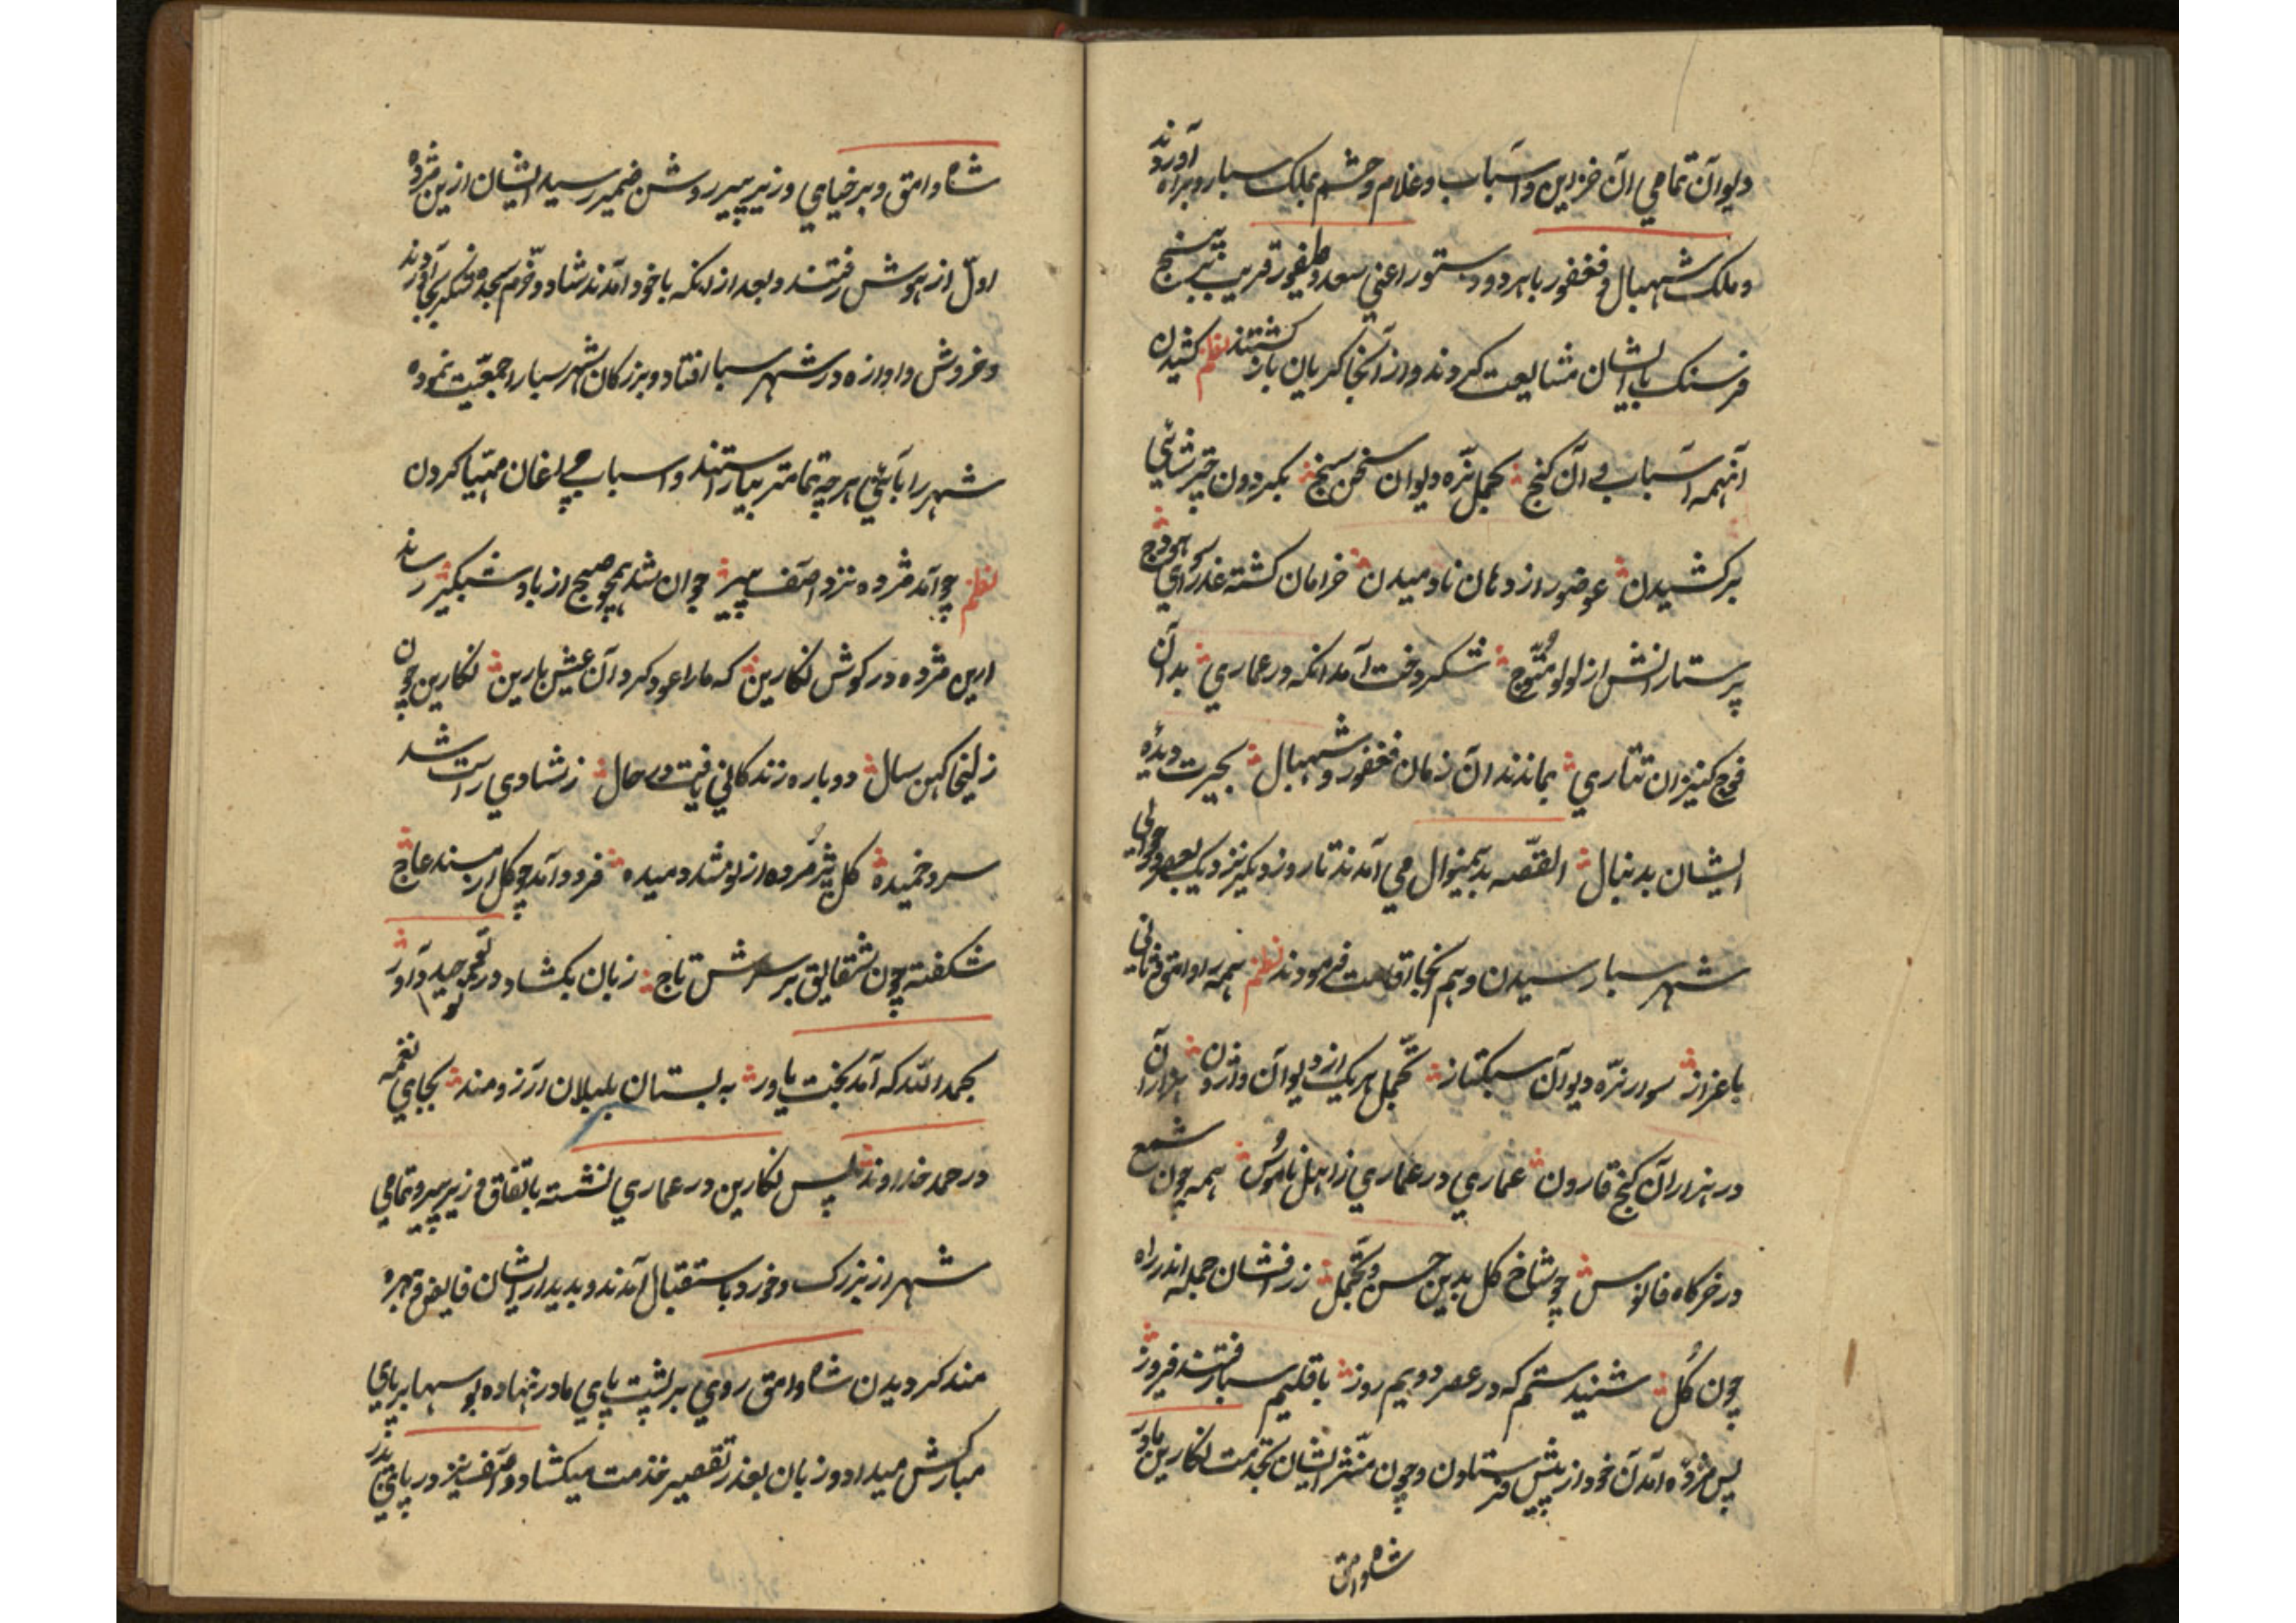 دیوان تمامي ان خزاین و اسباب و غلام و حشم بملک سبا روبراه آوردند
و ملک شهبال و فغفور با هر دو دستور اعني سعد و طیفور قریب به پنج
فرسنک با ایشان مشایعت کردند و از انجا کریان باز کشتند نظم کشیدن
انهمه اسباب و ان کنج تحمل نره دیوان سخن سنج بکردون چتر شاهي
برکشیدن عو صور از دهان ناد میدن خرامان کشته عذراي هودج
پرستارانش از لولو متوج شکر وخت آمد انکه در عماري بدان
فوج کنیزان تتاري بماندند ان زمان فغفور و شهبال بحیرت دیده
ایشان بدنبال القصه بدینمنوال مي آمدند تا روز دیکر نزدیک بعصر حوالي
شهر سبا رسیدن و هم انجا اقامت فرمودند نظم همه راه وامق
باعزاز سوار نره دیوان سبکتاز تحمل هر یک از دیوان وارون هزاران
در هزاران کنج قارون عماري در عماري ز اهل ناموس همه چون شمع
در خرکاه فانوس چو شاخ کل بدین حسن و تجمل زر افشان جمله اندر راه
چون کل شنیدستم که در عصر دویم روز باقلیم سبا رفتند فیروز
پس مژده آمدن خود از پیش فرستادن و چون مبشر ایشان بخدمت نکارین مادر
شاه وامق
شاه وامق و برخیاي وزیر پیر روشن ضمیر رسید ایشان ازین مژده
اول از هوش رفتند و بعد از انکه با خود آمدند شاد و خرم سجده شکر بجا آوردند
و خروش و اوازه در شهر سبا افتاد و بزرکان شهر سبا را جمعیت نموده
شهر را بآئین هر چه تمامتر بیاراستند و اسباب چراغان مهیا کردن
نظم چو آمد مژده نزد اصف پیر جوان شد همچو صبح از باد شبکیر رساند
این مژده در کوش نکارین که ما را عود کرد آن عیش پارین نکارین چون
زلیخا کهن سال دوباره زندکاني یافت در حال ز شادي راست شد
سرو خمیده کل پژمرده از نو شد دمیده فرود آمد چو کل از مسند عاج
شکفته چون شقایق بر سرش تاج زبان بکشاد در توحید داور
بحمد الله که آمد بخت یاور به بستان بلبلان ارزومند بجاي نغمه
در حمد خداوند پس نکارین در عماري نشسته باتفاق وزیر پیر و تمامي
شهر از بزرک و خورد باستقبال آمدند و بدیدار ایشان فایض و بهره
مند کردیدن شاه وامق روي بر پشت پاي مادر نهاده بوسها بر پاي
مبارکش میداد و زبان بعذر تقصیر خدمت میکشاد و اصف نیز در پاي پدر